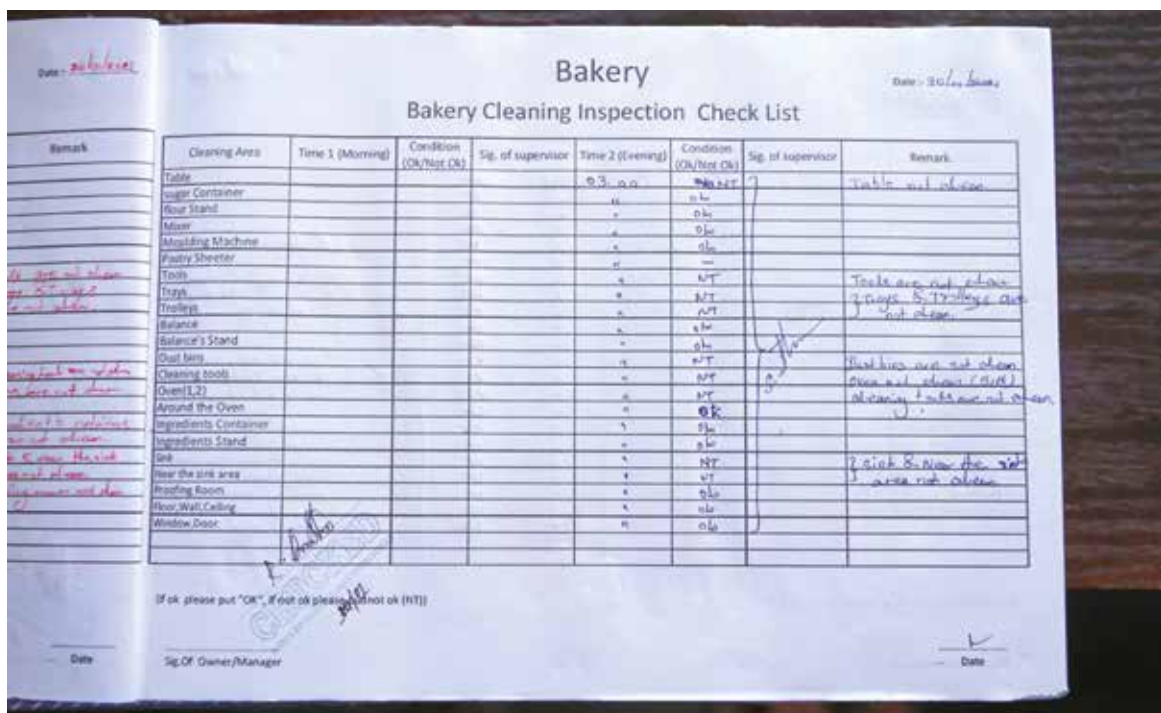 Date:-
Bakery
Date:-
Bakery Cleaning Inspection Check List
Remark
Cleaning Area Time 1 (Morning) Condition (Ok/Not Ok) Sig. of supervisor Time 2 (Evening) Condition (Ok/Not Ok) Sig. of supervisor Remark
Table 03. 00 NT Table not clean
sugar Container " ok
flour Stand " ok
Mixer " ok
Moulding Machine " ok
Pastry Sheeter " —
Tools " NT Tools are not clean
Trays " NT Trays & Trolleys are
Trolleys " NT not clean
Balance " ok
Balance's Stand " ok
Dust bins " NT Dust bins are not clean
Cleaning tools " NT Oven not clean
Oven(1,2) " NT cleaning tools are not clean
Around the Oven " ok
Ingredients Container " ok
Ingredients Stand " ok
Sink " NT sink & Near the sink
Near the sink area " NT area not clean
Proofing Room " ok
Floor,Wall,Ceiling " ok
Window,Door " ok
CHECKED
(If ok please put "OK", if not ok please not ok (NT))
Date
Sig.Of Owner/Manager
Date